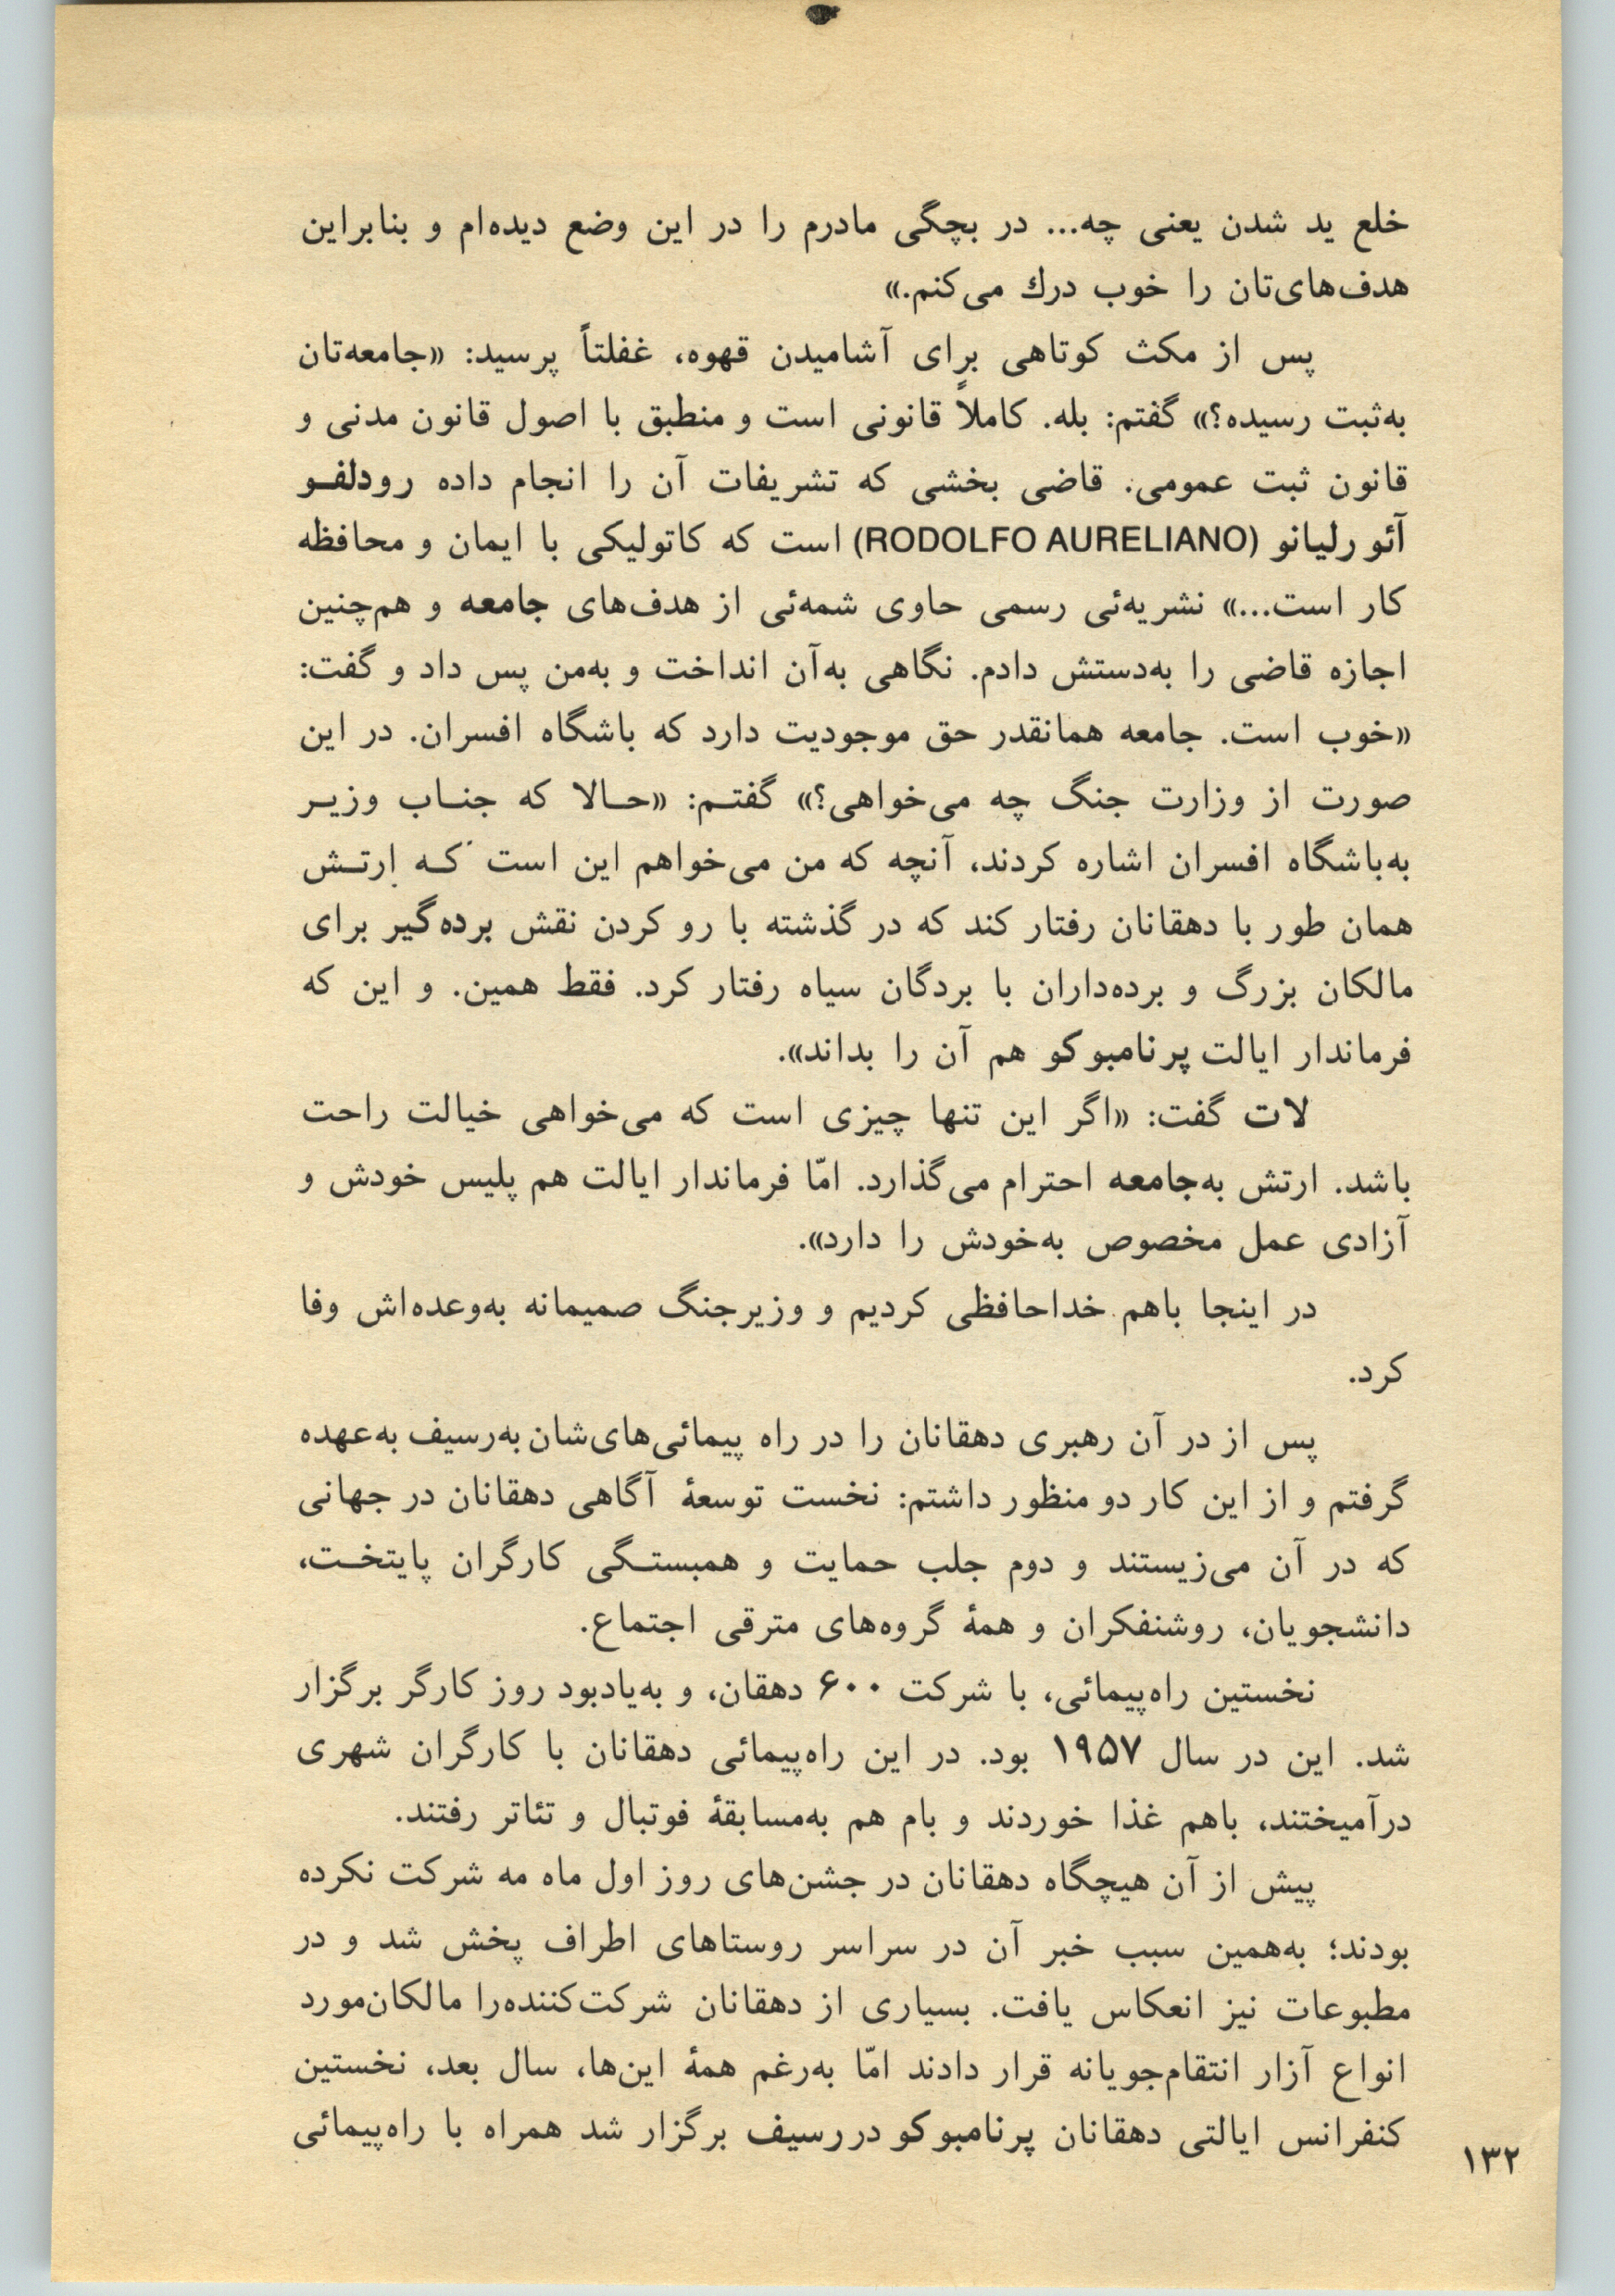 خلع ید شدن یعنی چه... در بچگی مادرم را در این وضع دیده‌ام و بنابراین
هدف‌های‌تان را خوب درك می‌کنم.»
پس از مکث کوتاهی برای آشامیدن قهوه، غفلتاً پرسید: «جامعه‌تان
به‌ثبت رسیده؟» گفتم: بله. کاملاً قانونی است و منطبق با اصول قانون مدنی و
قانون ثبت عمومی. قاضی بخشی که تشریفات آن را انجام داده رودلفـو
آئورلیانو (RODOLFO AURELIANO) است که کاتولیکی با ایمان و محافظه
کار است...» نشریه‌ئی رسمی حاوی شمه‌ئی از هدف‌های جامعه و هم‌چنین
اجازه قاضی را به‌دستش دادم. نگاهی به‌آن انداخت و به‌من پس داد و گفت:
«خوب است. جامعه همانقدر حق موجودیت دارد که باشگاه افسران. در این
صورت از وزارت جنگ چه می‌خواهی؟» گفتـم: «حـالا که جنـاب وزیـر
به‌باشگاه افسران اشاره کردند، آنچه که من می‌خواهم این است کـه ارتـش
همان طور با دهقانان رفتار کند که در گذشته با رو کردن نقش برده‌گیر برای
مالکان بزرگ و برده‌داران با بردگان سیاه رفتار کرد. فقط همین. و این که
فرماندار ایالت پرنامبوکو هم آن را بداند».
لات گفت: «اگر این تنها چیزی است که می‌خواهی خیالت راحت
باشد. ارتش به‌جامعه احترام می‌گذارد. امّا فرماندار ایالت هم پلیس خودش و
آزادی عمل مخصوص به‌خودش را دارد».
در اینجا باهم خداحافظی کردیم و وزیرجنگ صمیمانه به‌وعده‌اش وفا
کرد.
پس از در آن رهبری دهقانان را در راه پیمائی‌های‌شان به‌رسیف به‌عهده
گرفتم و از این کار دو منظور داشتم: نخست توسعهٔ آگاهی دهقانان در جهانی
که در آن می‌زیستند و دوم جلب حمایت و همبستـگی کارگران پایتخـت،
دانشجویان، روشنفکران و همهٔ گروه‌های مترقی اجتماع.
نخستین راه‌پیمائی، با شرکت ۶۰۰ دهقان، و به‌یادبود روز کارگر برگزار
شد. این در سال ۱۹۵۷ بود. در این راه‌پیمائی دهقانان با کارگران شهری
درآمیختند، باهم غذا خوردند و بام هم به‌مسابقهٔ فوتبال و تئاتر رفتند.
پیش از آن هیچگاه دهقانان در جشن‌های روز اول ماه مه شرکت نکرده
بودند؛ به‌همین سبب خبر آن در سراسر روستاهای اطراف پخش شد و در
مطبوعات نیز انعکاس یافت. بسیاری از دهقانان شرکت‌کننده‌را مالکان‌مورد
انواع آزار انتقام‌جویانه قرار دادند امّا به‌رغم همهٔ این‌ها، سال بعد، نخستین
کنفرانس ایالتی دهقانان پرنامبوکو دررسیف برگزار شد همراه با راه‌پیمائی
۱۳۲